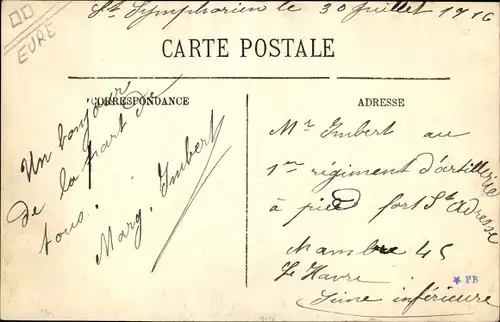 St Symphorien le 30 Juillet 1916
EURE
CARTE POSTALE
CORRESPONDANCE
Un bonjour
de la part de
tous.
Marg. Imbert
ADRESSE
Mr Imbert au
1er régiment d'artillerie
à pied fort Ste Adresse
45
Le Havre
Seine inférieure
PB